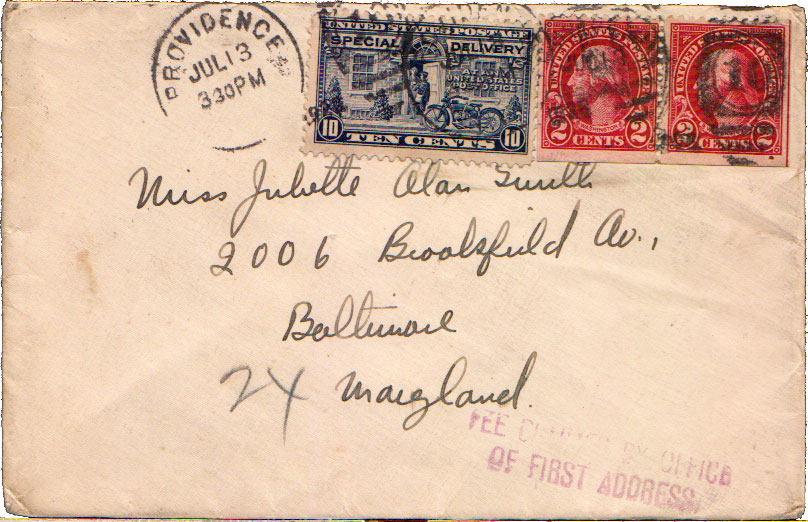 PROVIDENCE
JUL 13
3 30 PM
UNITED STATES POSTAGE
SPECIAL DELIVERY
AT ANY
UNITED STATES
POST OFFICE
10 TEN CENTS 10
UNITED STATES POSTAGE
2 CENTS 2
UNITED STATES POSTAGE
2 CENTS 2
Miss Juliette Alan Smith
2006 Brooksfield Av.,
Baltimore
24 Maryland.
FEE CLAIMED BY OFFICE
OF FIRST ADDRESS